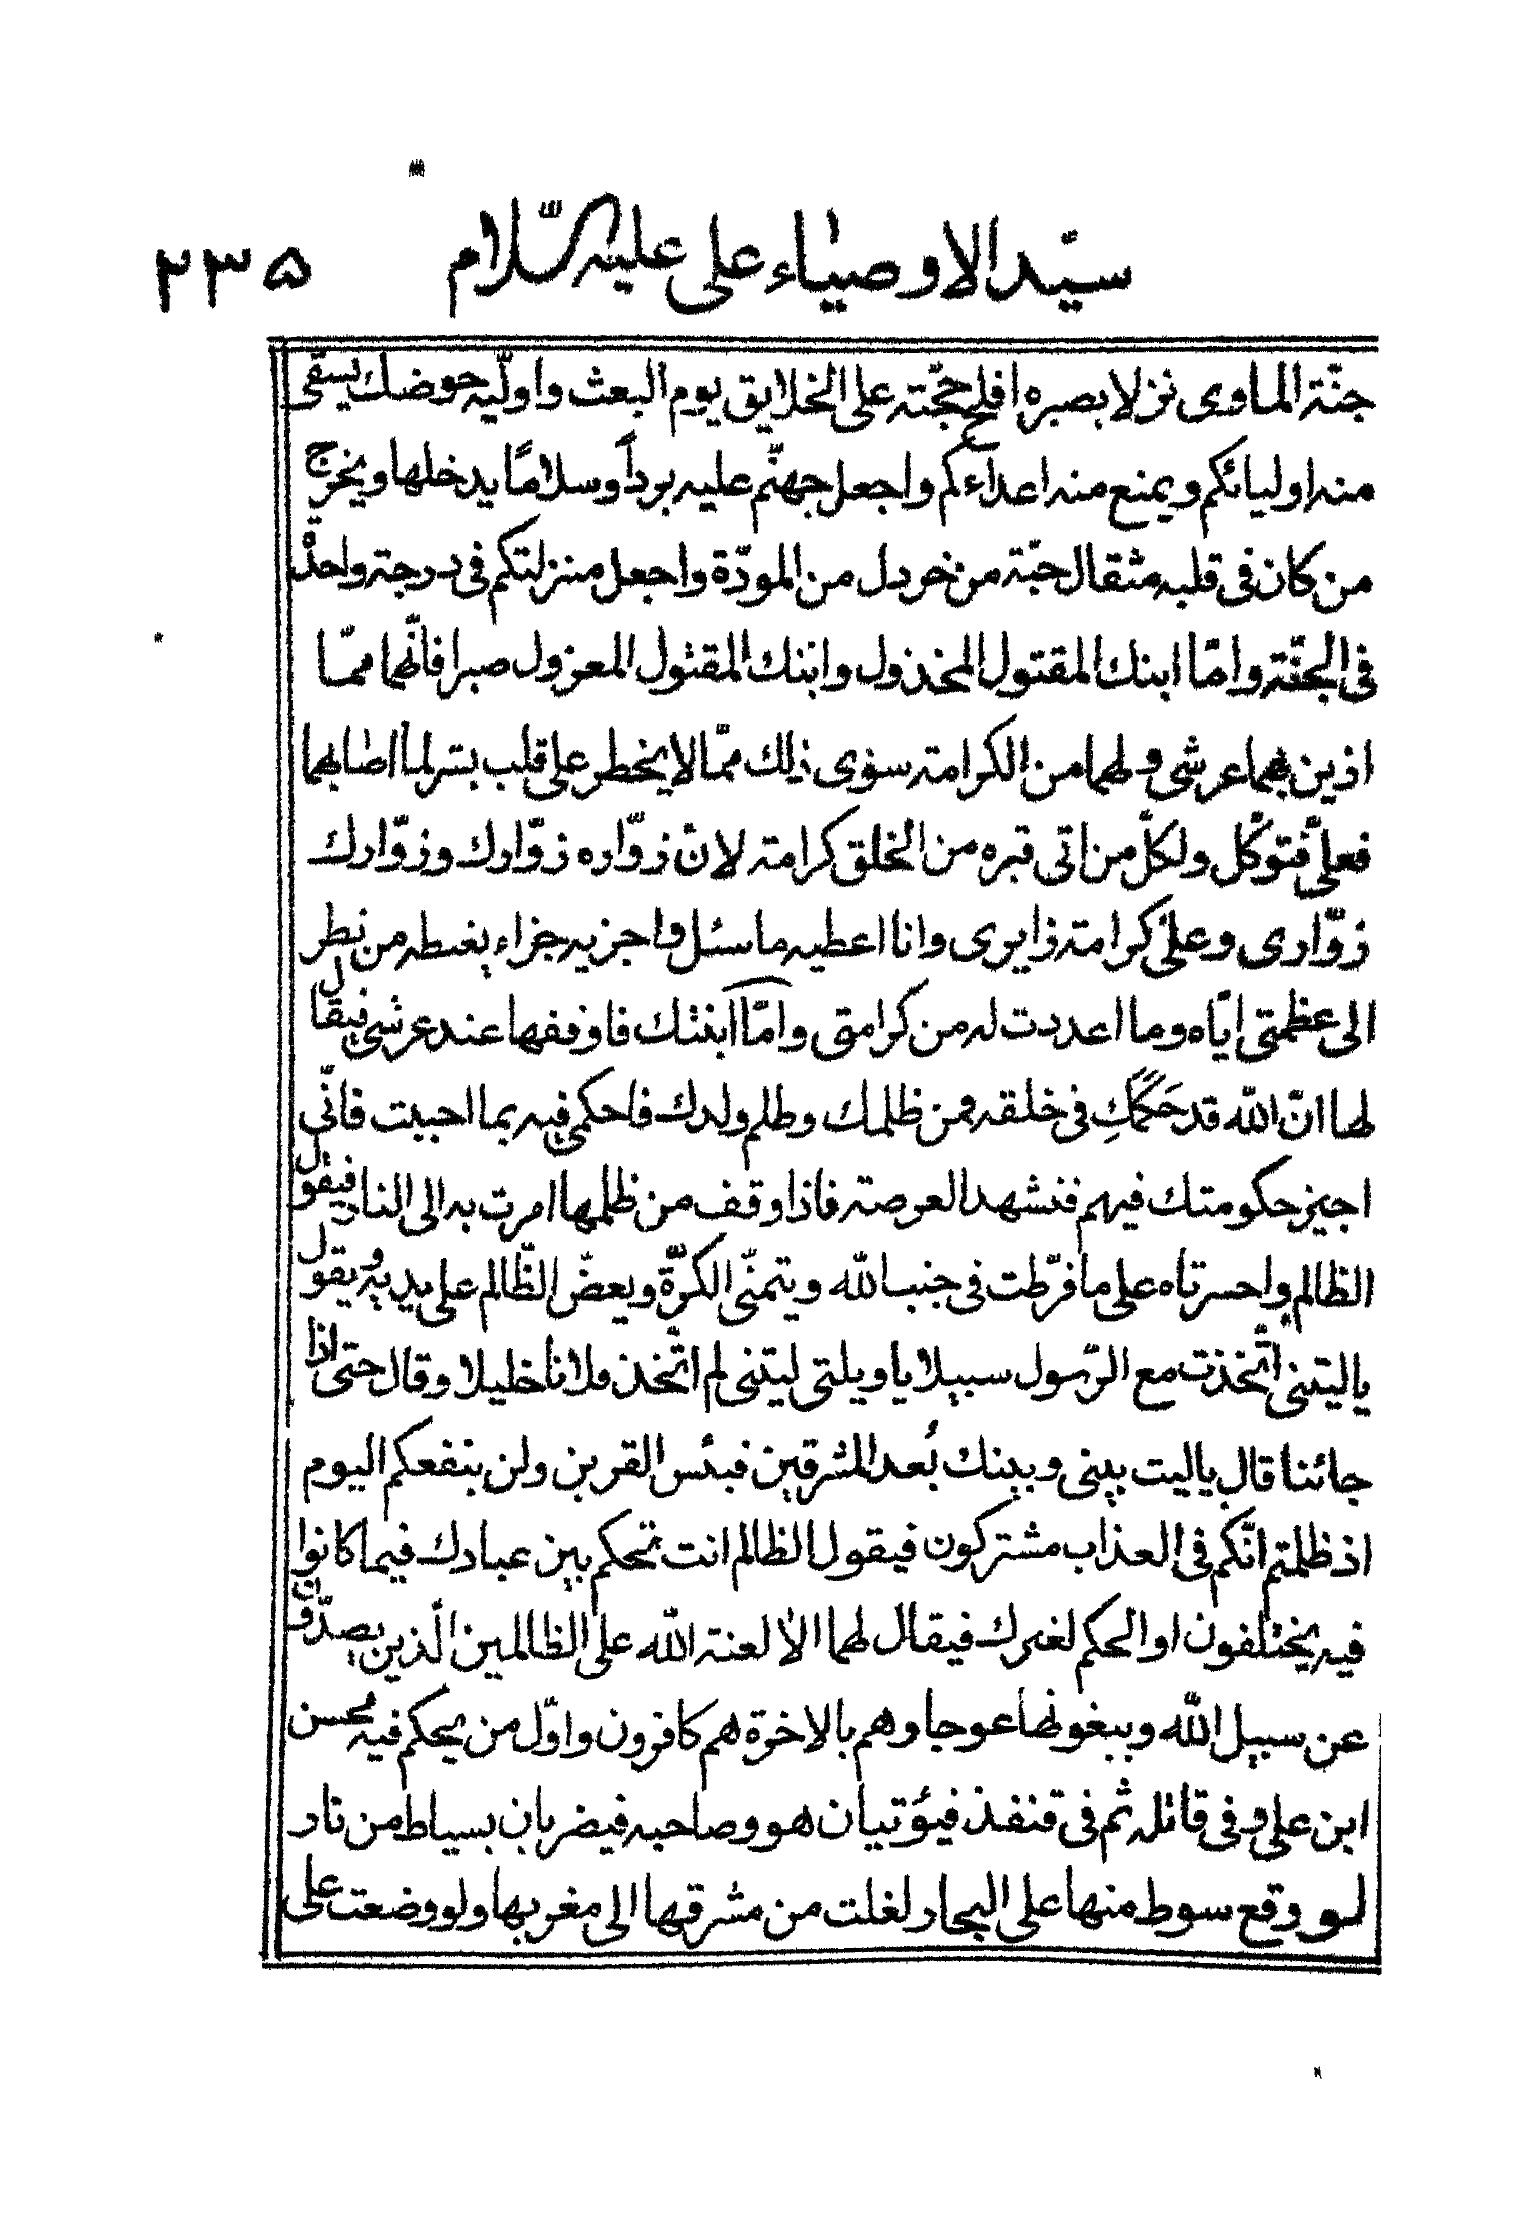 سیّد الاوصیاء علی علیه السّلام ۲۳۵
جنّة الماوی نزلا بصبره افلح حجّته علی الخلایق یوم البعث واولّیه حوضك یسقی
منه اولیائکم ویمنع منه اعداءکم واجعل جهنّم علیه برداً وسلامًا یدخلها ویخرج
من کان فی قلبه مثقال حبّة من خردل من المودّة واجعل منزلتکم فی درجة واحدة
فی الجنّة وامّا ابنك المقتول المخذول وابنك المقتول المعزول صبرا فانّهما ممّا
ازین بهما عرشی ولهما من الکرامة سوی ذلك ممّا لا یخطر علی قلب بشر لما اصابهما
فعلیّ فتوکّل ولکلّ من اتی قبره من الخلق کرامة لانّ زوّاره زوّارك وزوّارك
زوّاری وعلیّ کرامة زایری وانا اعطیه ما سئل واجزیه جزاء یغبطه من نظر
الی عظمتی ایّاه وما اعددت له من کرامتی وامّا ابنتك فاوقفها عند عرشی فیقال
لها انّ الله قد حَکَّمَكِ فی خلقه فمن ظلمك وظلم ولدك فاحکمی فیه بما احببت فانّی
اجیز حکومتك فیهم فتشهد العرصة فاذا وقف من ظلمها امرت به الی النار فیقول
الظالم واحسرتاه علی ما فرّطت فی جنب الله ویتمنّی الکرّة ویعضّ الظّالم علی یدیه ویقول
یا لیتنی اتّخذت مع الرّسول سبیلا یا ویلتی لیتنی لم اتّخذ فلانا خلیلا وقال حتی اذا
جائنا قال یا لیت بینی وبینك بُعد المشرقین فبئس القرین ولن ینفعکم الیوم
اذ ظلمتم انّکم فی العذاب مشترکون فیقول الظالم انت تحکم بین عبادك فیما کانوا
فیه یختلفون او الحکم لغیرك فیقال لهما الا لعنة الله علی الظالمین الّذین یصدّون
عن سبیل الله ویبغونها عوجا وهم بالاخرة هم کافرون واوّل من یحکم فیه محسن
ابن علی و فی قاتله ثم فی قنفذ فیؤتیان هو وصاحبه فیضربان بسیاط من نار
لو وقع سوط منها علی البحار لغلت من مشرقها الی مغربها ولو وضعت علی